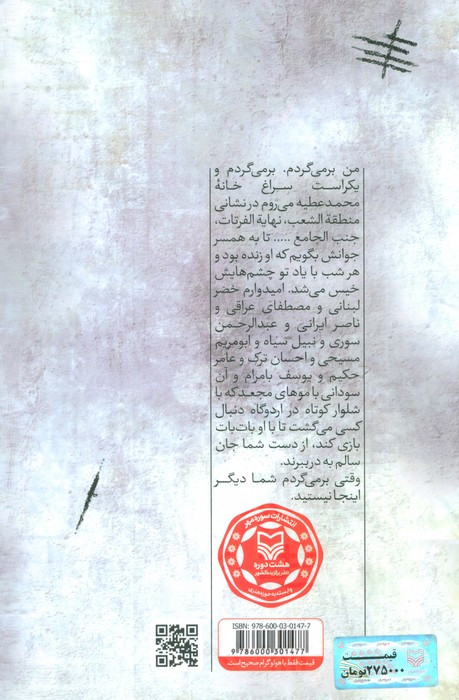 من برمی‌گردم. برمی‌گردم و
یکراست سراغ خانهٔ
محمدعطیه می‌روم در نشانی
منطقة الشعب، نهایة الفرتات،
جنب الجامع ..... تا به همسر
جوانش بگویم که او زنده بود و
هر شب با یاد تو چشم‌هایش
خیس می‌شد. امیدوارم خضر
لبنانی و مصطفای عراقی و
ناصر ایرانی و عبدالرحمن
سوری و نبیل سیاه و ابومریم
مسیحی و احسان ترک و عامر
حکیم و یوسف بامرام و آن
سودانی با موهای مجعد که با
شلوار کوتاه در اردوگاه دنبال
کسی می‌گشت تا با او بات‌بات
بازی کند، از دست شما جان
سالم به در ببرند.
وقتی برمی‌گردم شما دیگر
اینجا نیستید.
انتشارات سوره مهر
هشت دوره
ناشر برگزیده کشور
وابسته به حوزه هنری
ISBN: 978-600-03-0147-7
9 786000 301477
قیمت فقط با هولوگرام صحیح است
قیمت
۲۷۵۰۰۰ تومان